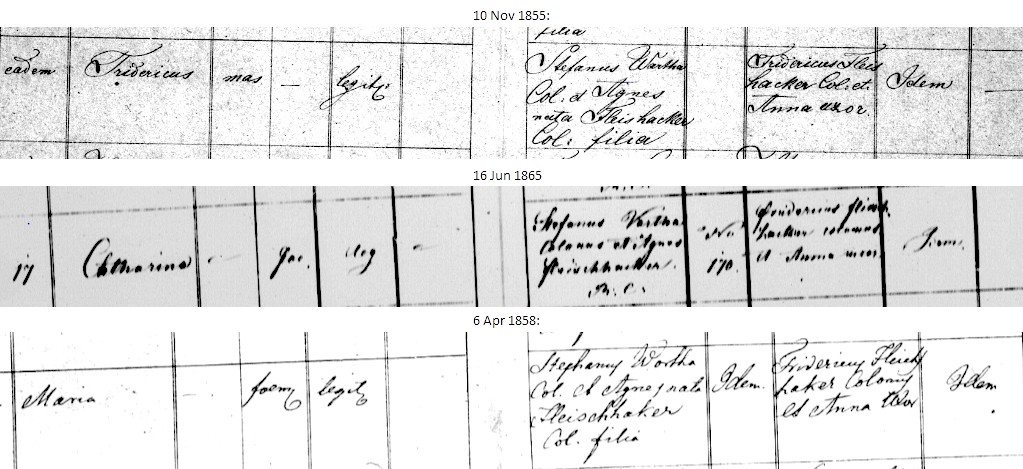 10 Nov 1855:
filia
eadem Fridericus mas — legit: Stefanus Wartha Fridericus Fleis Idem —
Col. et Agnes hacker Col. et
nata Fleishacker Anna uxor.
Col: filia
16 Jun 1865
17 Catharina — leg — Stefanus Vartha No Fridericus Fleisch
Colonus et Agnes 170. hacker colonus Idem.
Fleischhacker. et Anna uxor.
R. C.
6 Apr 1858:
Maria — foem legit Stephanus Wortha Idem. Fridericus Fleisch Idem
Col. et Agnes nata haker Colonus
Fleischhaker et Anna Uxor
Col. filia